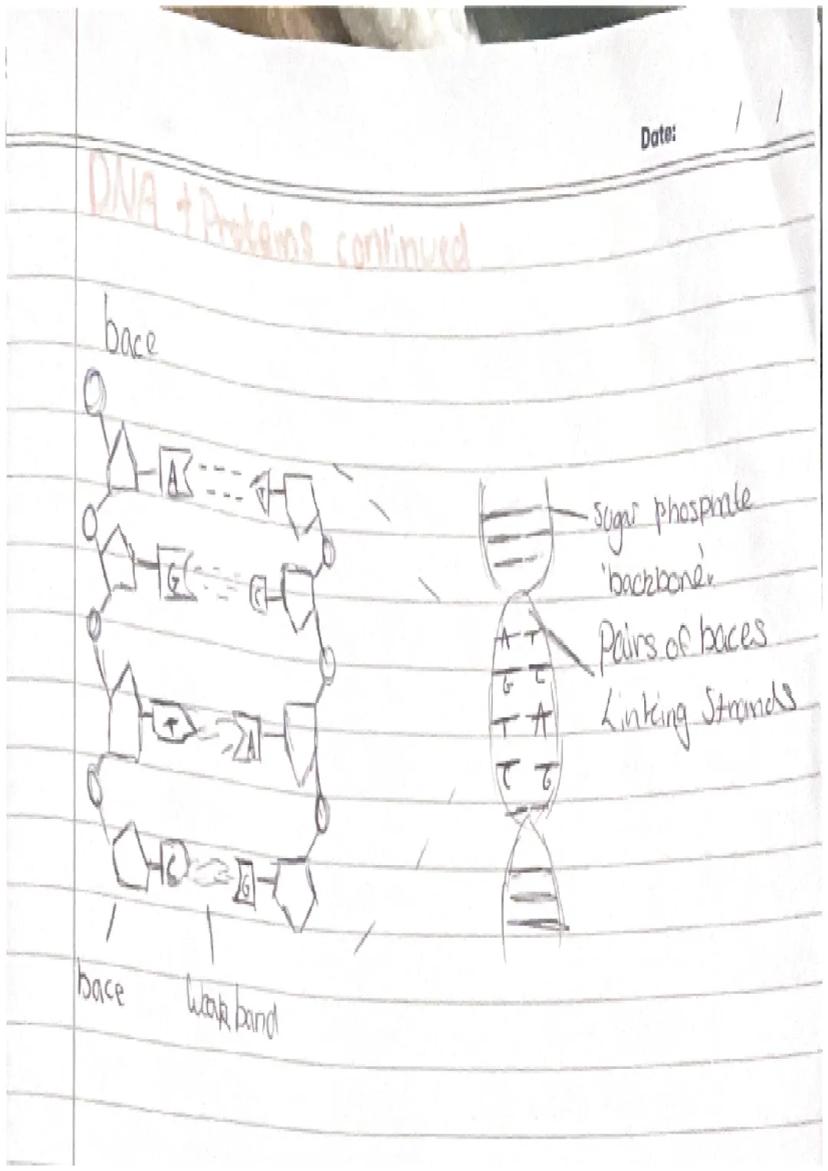 Date: / /
DNA + Proteins continued
bace
A
G C
T A
C G
bace Weak band
Sugar phosphate
'backbone'.
Pairs of baces
Linking Strands
A T
G C
T A